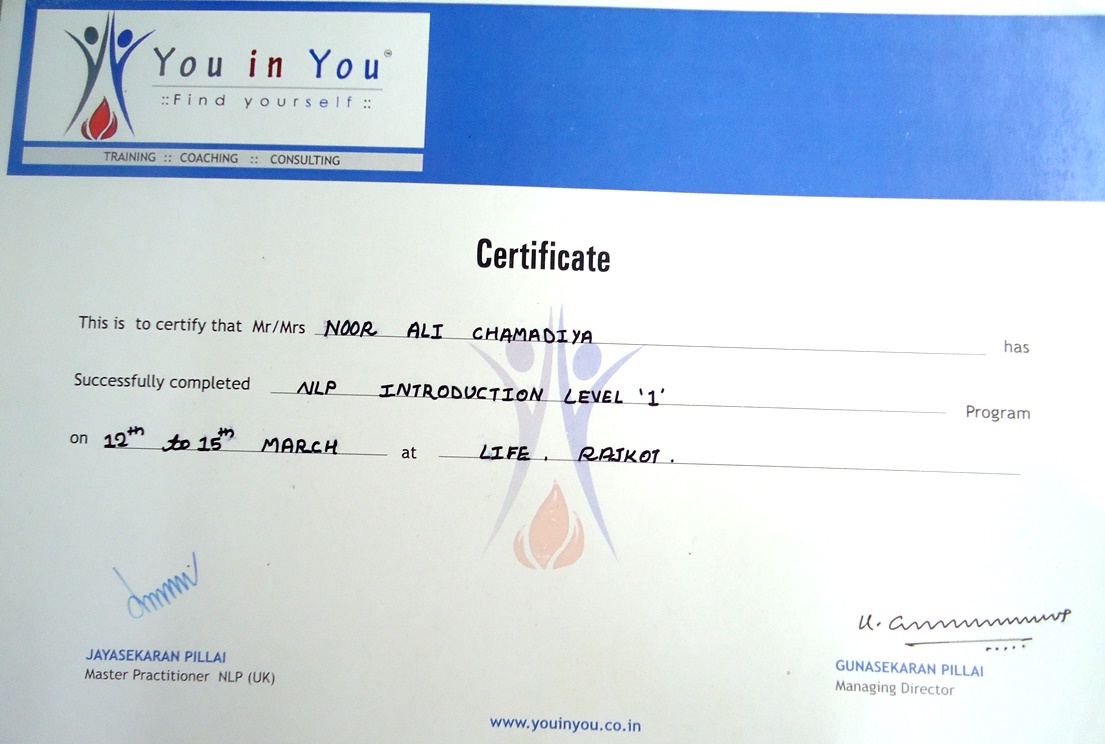 You in You™
::Find yourself ::
TRAINING :: COACHING :: CONSULTING
Certificate
This is to certify that Mr/Mrs NOOR ALI CHAMADIYA has
Successfully completed NLP INTRODUCTION LEVEL '1' Program
on 12th to 15th MARCH at LIFE . RAJKOT .
JAYASEKARAN PILLAI
Master Practitioner NLP (UK)
GUNASEKARAN PILLAI
Managing Director
www.youinyou.co.in